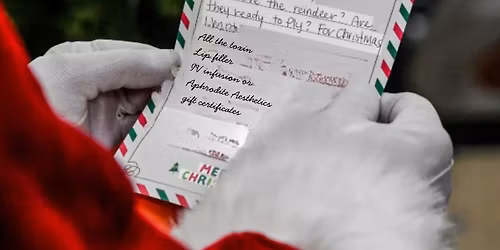 the reindeer? Are
they ready to fly? For Christmas
I want
All the toxin
Lip filler
IV infusion or
Aphrodite Aesthetics
gift certificates
ME
CHRI